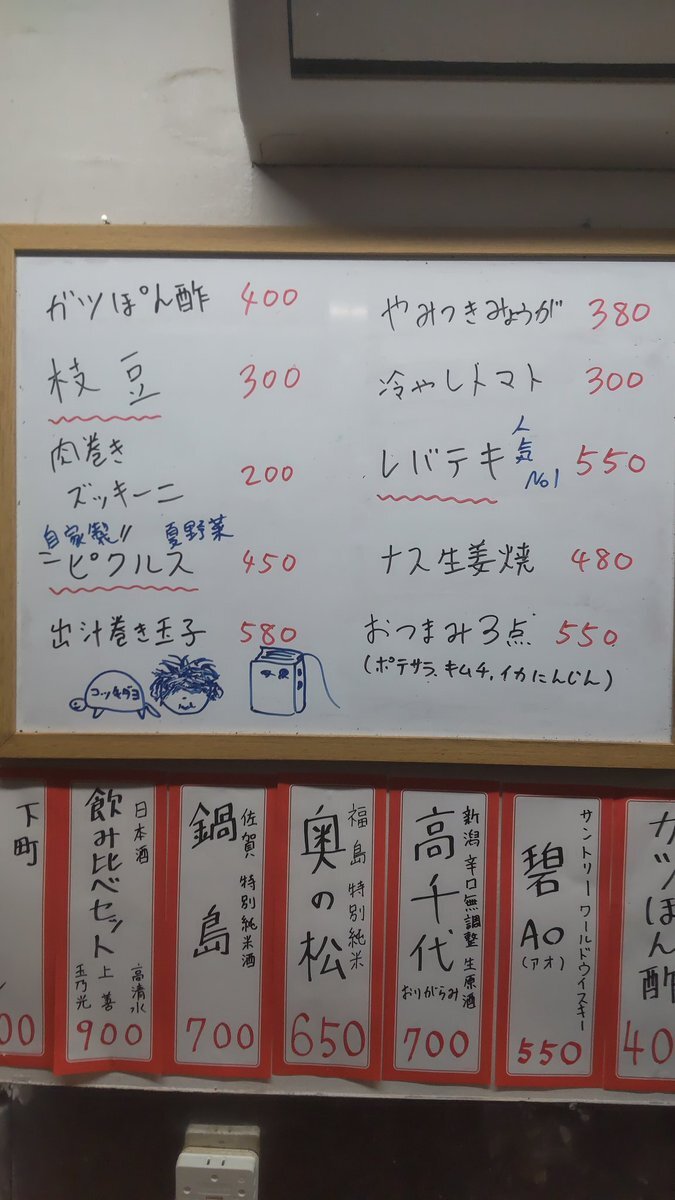 ガツぽん酢 400
枝豆 300
肉巻き
ズッキーニ 200
自家製!! 夏野菜
ピクルス 450
出汁巻き玉子 580
コッチガヨ
やみつきみょうが 380
冷やしトマト 300
レバテキ 人気No1 550
ナス生姜焼 480
おつまみ3点 550
(ポテサラ、キムチ、イカにんじん)
サントリーワールドウイスキー
碧Ao
(アオ)
550
新潟 辛口無調整 生原酒
高千代
おりがらみ
700
福島 特別純米
奥の松
650
佐賀 特別純米酒
鍋島
700
日本酒
飲み比べセット
高清水
上善
玉乃光
900
下町
00
ガツぽん酢
40